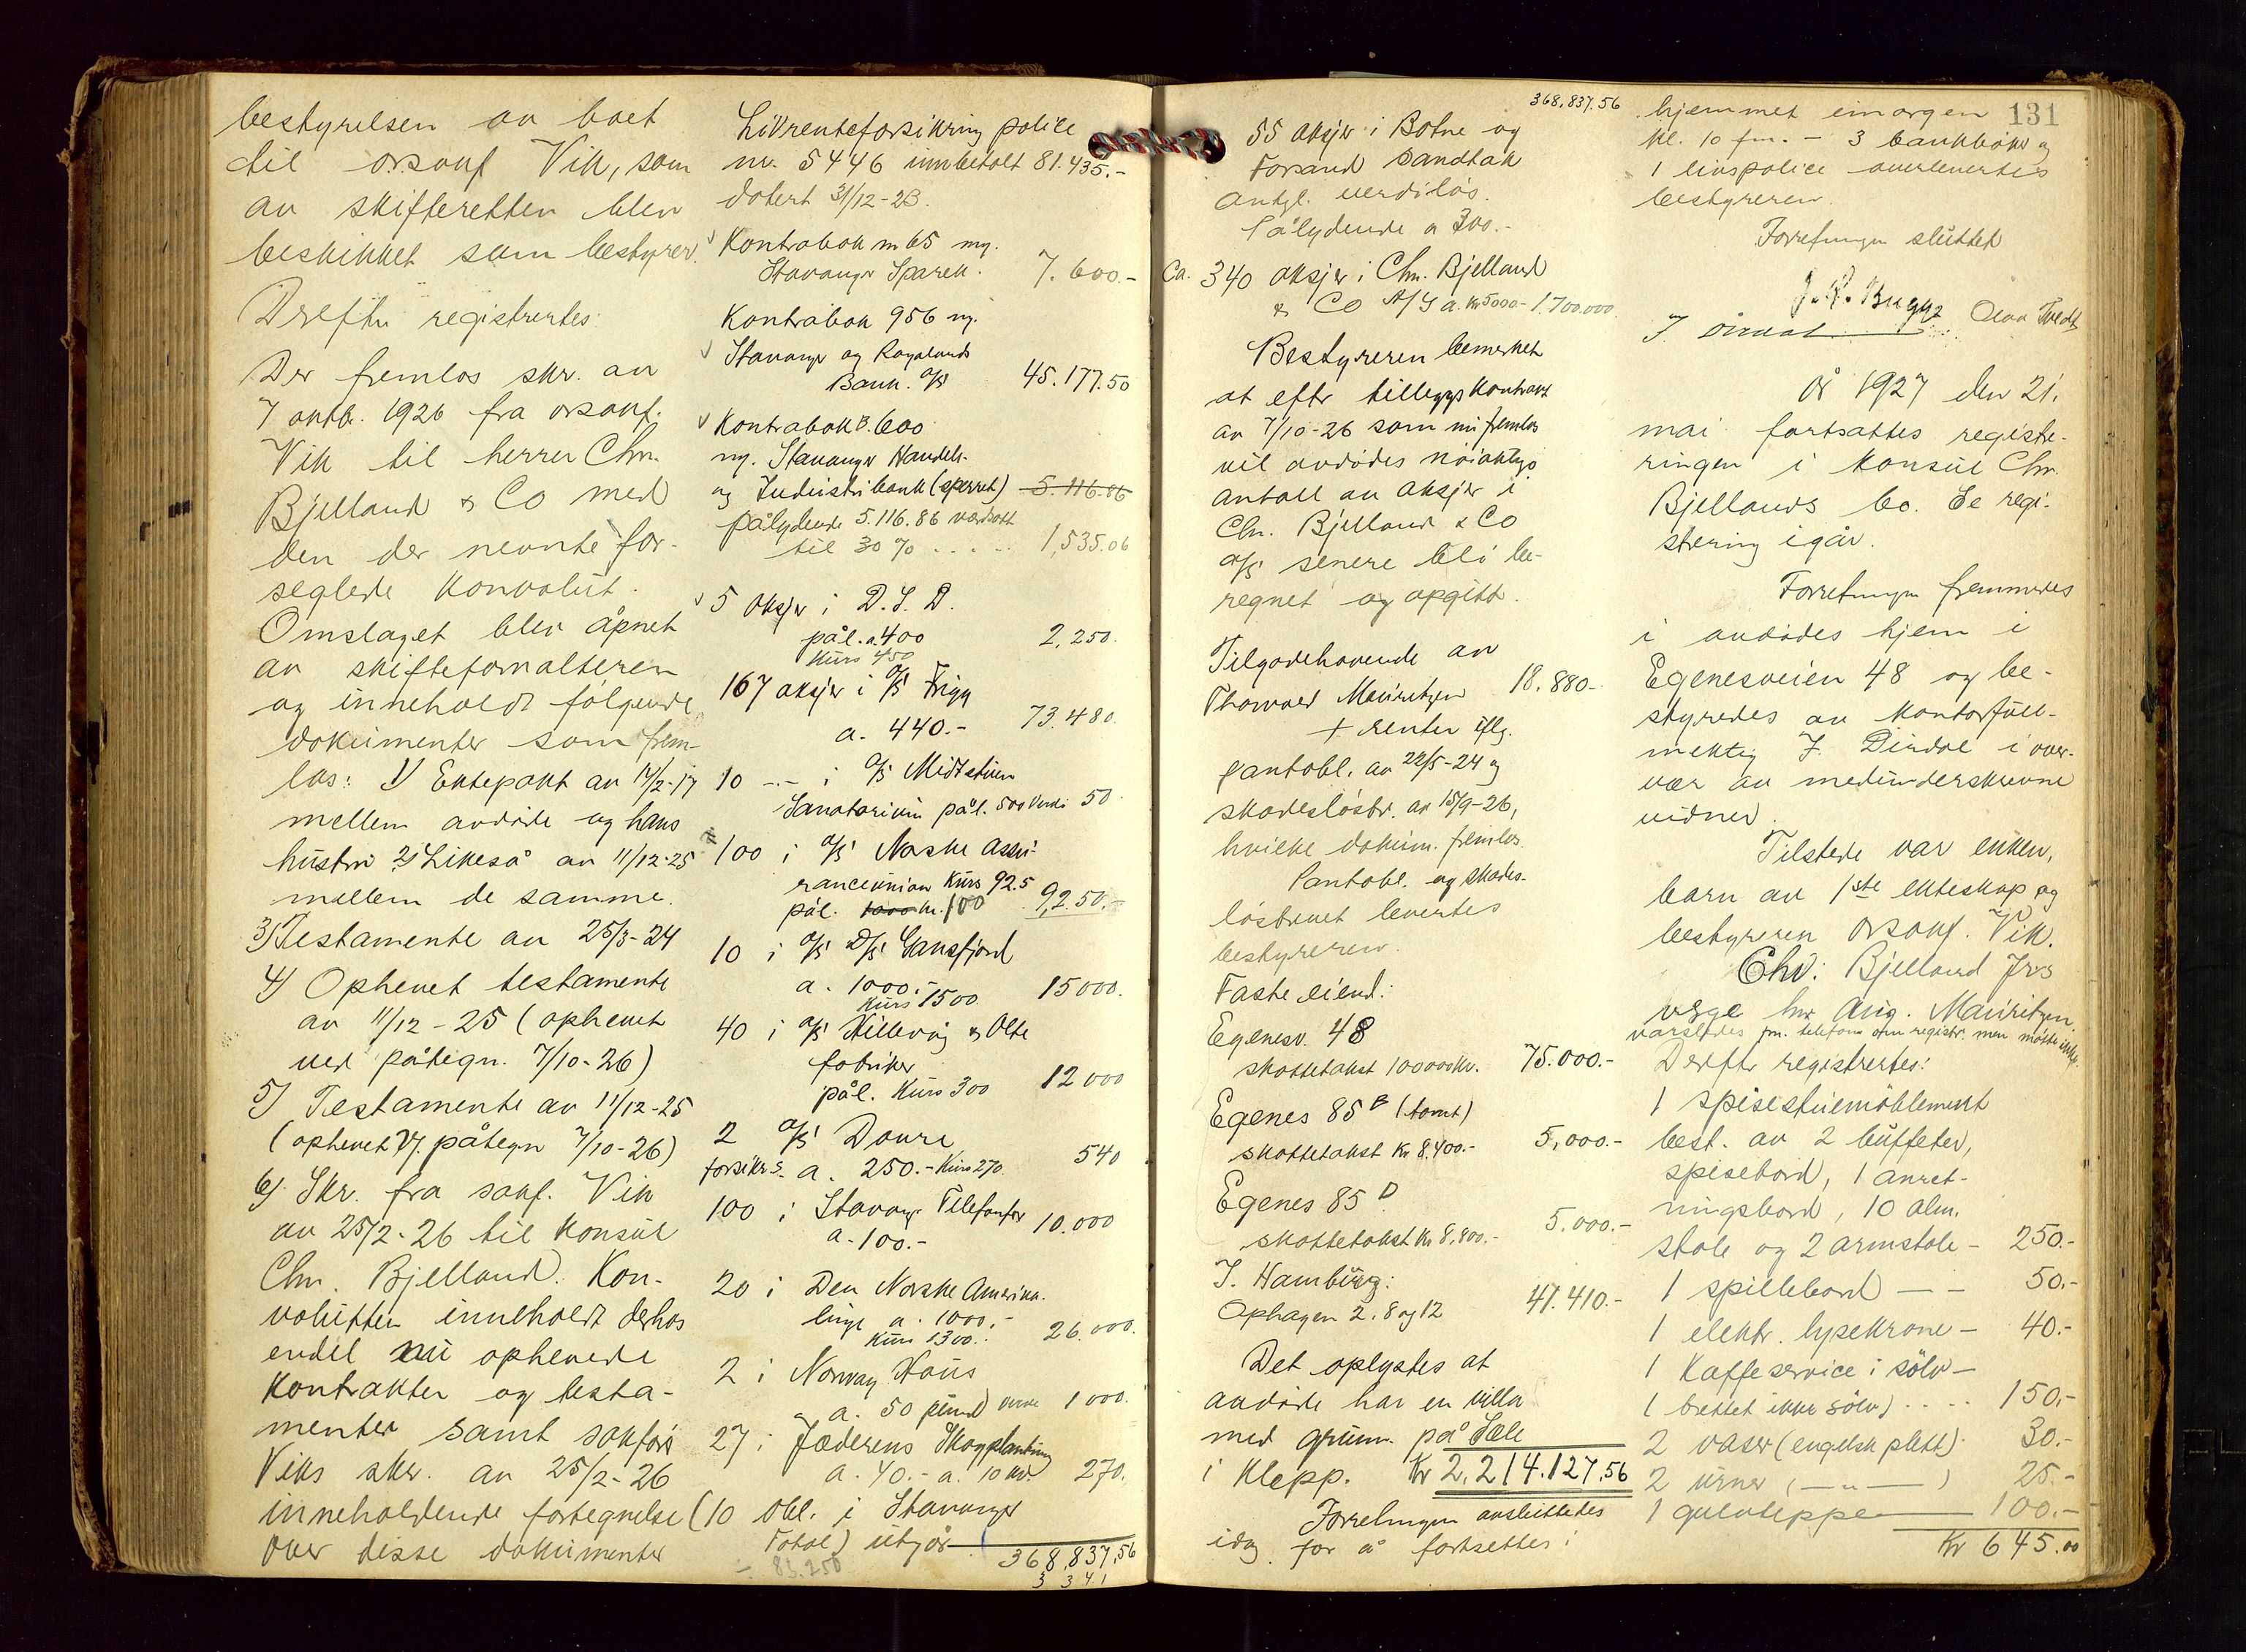 bestyrelsen av boet
til orsakf Vik, som
av skifteretten blev
beskikket som bestyrer.
Derefter registrertes:
Der fremlas skr. av
7 oktb. 1926 fra orsakf.
Vik til herrer Chr.
Bjelland & Co med
den der nevnte for-
seglede konvolut.
Omslaget blev åpnet
av skifteforvalteren
og inneholdt følgende
dokumenter som frem-
las: 1) Ektepakt av 14/2-17
mellem avdøde og hans
hustru 2) Likeså av 11/12-25
mellem de samme.
3) Testamente av 25/3-24
4) Ophevet testamente
av 11/12-25 (ophevet
ved påtegn. 7/10-26)
5) Testamente av 11/12-25
(ophevet v. påtegn 7/10-26)
6) Skr. fra sakf. Vik
av 25/2-26 til Konsul
Chr. Bjelland. Kon-
volutten inneholdt derhos
endel nu ophevede
kontrakter og testa-
menter samt sakfør
Viks skr. av 25/2-26
inneholdende fortegnelse
over disse dokumenter
Livrenteforsikring police
nr. 5446 innbetalt 81.435.-
datert 31/12-23.
Kontrabok nr 65 ny.
Stavanger Sparek. 7.600.-
Kontrabok 956 ny.
Stavanger og Rogalands
Bank. A/S 45.177.50
Kontrabok B. 600
ny. Stavanger Handels-
og Industribank (sperret) 5.116.86
pålydende 5.116.86 verdsatt
til 30% ..... 1,535.06
5 aksjer i D.S.D.
pål. a. 400 2,250.
Kurs 450
167 aksjer i A/S Frigg
a. 440.- 73.480
10 -- i A/S Midtstuen
Sanatorium pål. 500 verdi 50.
100 i A/S Norske Assu-
ranceunion Kurs 92.5
pål. 1000 kr. 100 9,250.-
10 i A/S D/S Gansfjord
a. 1000.- 15000.
Kurs 1500.
40 i A/S Hillevåg & Olte
fabriker
pål. Kurs 300 12000
2 A/S Dovre
forsikr.s. a. 250.- Kurs 270. 540
100 i Stavang. Telefonfor
a. 100.- 10.000
20 i Den Norske Amerika-
linje a. 1000.-
Kurs 1300.- 26.000.
2 i Norway Hous
a. 50 pund 1000.
27 i Jæderens Skogplantning
a. 40.- a. 10 kr. 270.
(10 obl. i Stavanger
Total) utgjør 368,837,56
- 83.250
3 3 4.1
368,837.56
55 aksjer i Botne og
Forsand Sandtak
antgl. verdiløs.
Pålydende a 300.-
Ca. 340 aksjer i Chr. Bjelland
& Co A/S a. kr 5000- 1.700.000
Bestyreren bemerket
at efter tilleggskontrakt
av 7/10-26 som nu fremlas
vil avdødes nøiaktige
antall av aksjer i
Chr. Bjelland & Co
A/S senere bli be-
regnet og opgitt.
Tilgodehavende av
Thorvald Mauritzen 18.880-
+ renter iflg.
pantobl. av 22/5-24 og
skadesløsbr. av 15/9-26,
hvilke dokum. fremlas.
Pantobl. og skades-
løsbrevet levertes
bestyreren.
Faste eiend.:
Egenesv. 48
skattetakst 100000 kr. 75.000.-
Egenes 85 B (tomt)
skattetakst kr 8.400.- 5,000.-
Egenes 85 D
skattetakst kr 8,800.- 5.000.-
I. Hamburg:
Ophagen 2. 8 og 12 47.410.-
Det oplystes at
avdøde har en villa
med grunn. på Sele
i Klepp. Kr 2.214.127,56
Forretningen avsluttedes
idag for å fortsettes i
131
hjemmet imorgen
kl. 10 fm. - 3 bankbøker og
1 livspolice overlevertes
bestyreren.
Forretningen sluttet
Olav Tvedt
År 1927 den 21.
mai fortsattes registre-
ringen i Konsul Chr.
Bjellands bo. Se regi-
strering igår.
Forretningen fremmedes
i avdødes hjem i
Egenesveien 48 og be-
styredes av kontorfull-
mektig J. Dirdal i over-
vær av medunderskrevne
vidner.
Tilstede var enken,
barn av 1ste ekteskap og
bestyreren orsakf. Vik.
Chr. Bjelland Jrs
verge hr Aug. Mauritzen
varsledes pr. telefon om registr. men møtte ikke.
Derefter registrertes:
1 spisestuemøblement
best. av 2 buffeter,
spisebord, 1 anret-
ningsbord, 10 alm.
stole og 2 armstole - 250.-
1 spillebord - - 50.-
1 elektr. lysekrone - 40.-
1 Kaffeservice i sølv -
(brettet ikke sølv) .... 150.-
2 vaser (engelsk plett). 30.-
2 urner ( — " — ) 25.-
1 gulvteppe 100.-
Kr 645.00